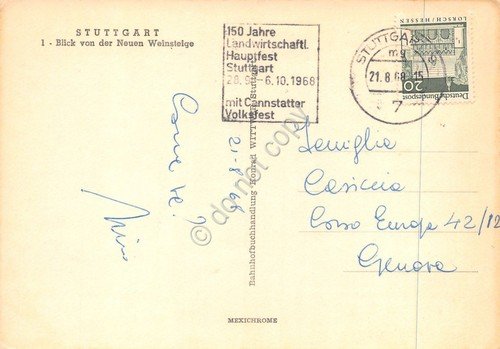 STUTTGART
1 - Blick von der Neuen Weinsteige
150 Jahre
Landwirtschaftl.
Hauptfest
Stuttgart
28.9.-6.10.1968
mit Cannstatter
Volksfest
STUTTGART
mg
21.8.68-15
7
LORSCH/HESSEN
20
Deutsche Bundespost
21-8-68
Bahnhofbuchhandlung Konrad WITTWER Stuttgart
Famiglia
Casiccia
Corso Europa 42/12
Genova
MEXICHROME
© do not copy